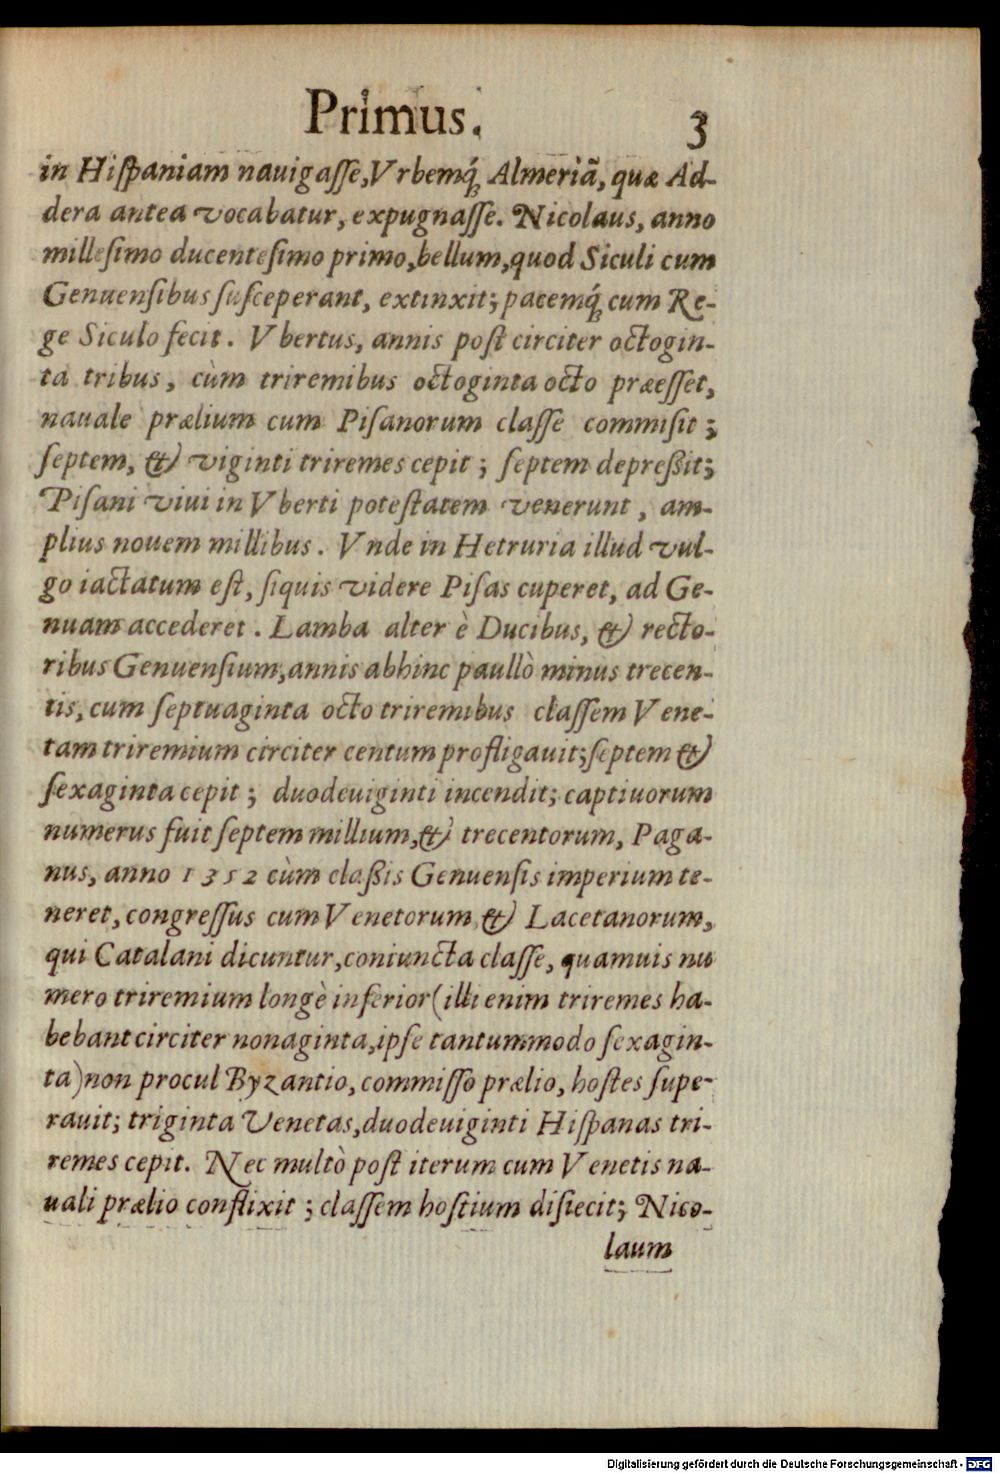 Primus.
3
in Hiſpaniam nauigaſſe, Vrbemq́ꝫ Almeriã, quæ Ad-
dera antea vocabatur, expugnaſſe. Nicolaus, anno
milleſimo ducenteſimo primo, bellum, quod Siculi cum
Genuenſibus ſuſceperant, extinxit; pacemq́ꝫ cum Re-
ge Siculo fecit. Vbertus, annis poſt circiter octogin-
ta tribus, cùm triremibus octoginta octo præeſſet,
nauale prælium cum Piſanorum claſſe commiſit;
ſeptem, & viginti triremes cepit; ſeptem depreßit;
Piſani viui in Vberti poteſtatem venerunt, am-
plius nouem millibus. Vnde in Hetruria illud vul-
go iactatum eſt, ſiquis videre Piſas cuperet, ad Ge-
nuam accederet. Lamba alter è Ducibus, & recto-
ribus Genuenſium, annis abhinc paullò minus trecen-
tis, cum ſeptuaginta octo triremibus claſſem Vene-
tam triremium circiter centum profligauit; ſeptem &
ſexaginta cepit; duodeuiginti incendit; captiuorum
numerus fuit ſeptem millium, & trecentorum, Paga-
nus, anno 1352 cùm claßis Genuenſis imperium te-
neret, congreſſus cum Venetorum, & Lacetanorum,
qui Catalani dicuntur, coniuncta claſſe, quamuis nu
mero triremium longè inferior (illi enim triremes ha-
bebant circiter nonaginta, ipſe tantummodo ſexagin-
ta) non procul Byzantio, commiſſo prælio, hoſtes ſupe-
rauit; triginta Venetas, duodeuiginti Hiſpanas tri-
remes cepit. Nec multò poſt iterum cum Venetis na-
uali prælio conflixit; claſſem hoſtium diſiecit; Nico-
laum
Digitalisierung gefördert durch die Deutsche Forschungsgemeinschaft - DFG